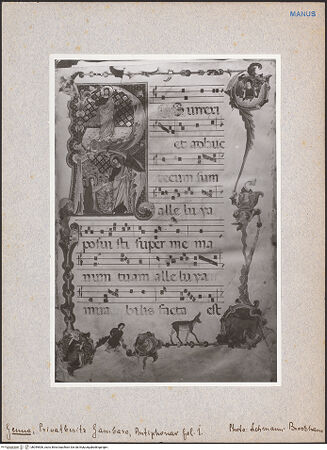 MANUS
Surrexi
et adhuc
tecum sum
alle lu ya
posui sti super me ma
num tuam alle lu ya
mira bilis facta est
Genua, Privatbesitz Gambaro, Antiphonar fol. 1.
Photo: Lehmann-Brockhaus